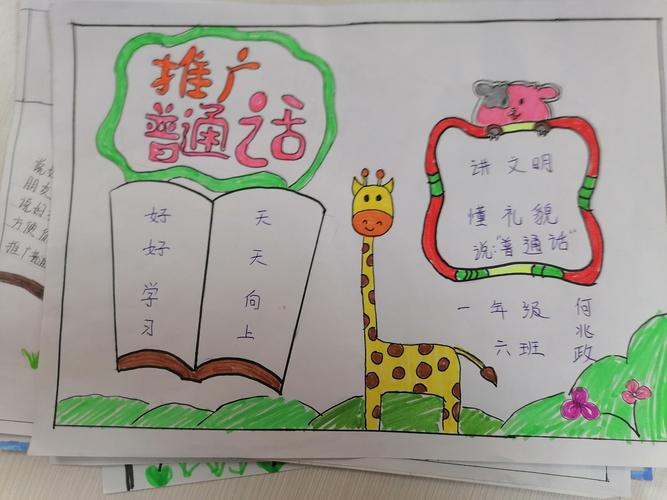 推广
普通话
好好学习
天天向上
讲文明
懂礼貌
说:"普通话"
一年级
六班
何兆政
说好
方便
推广普通